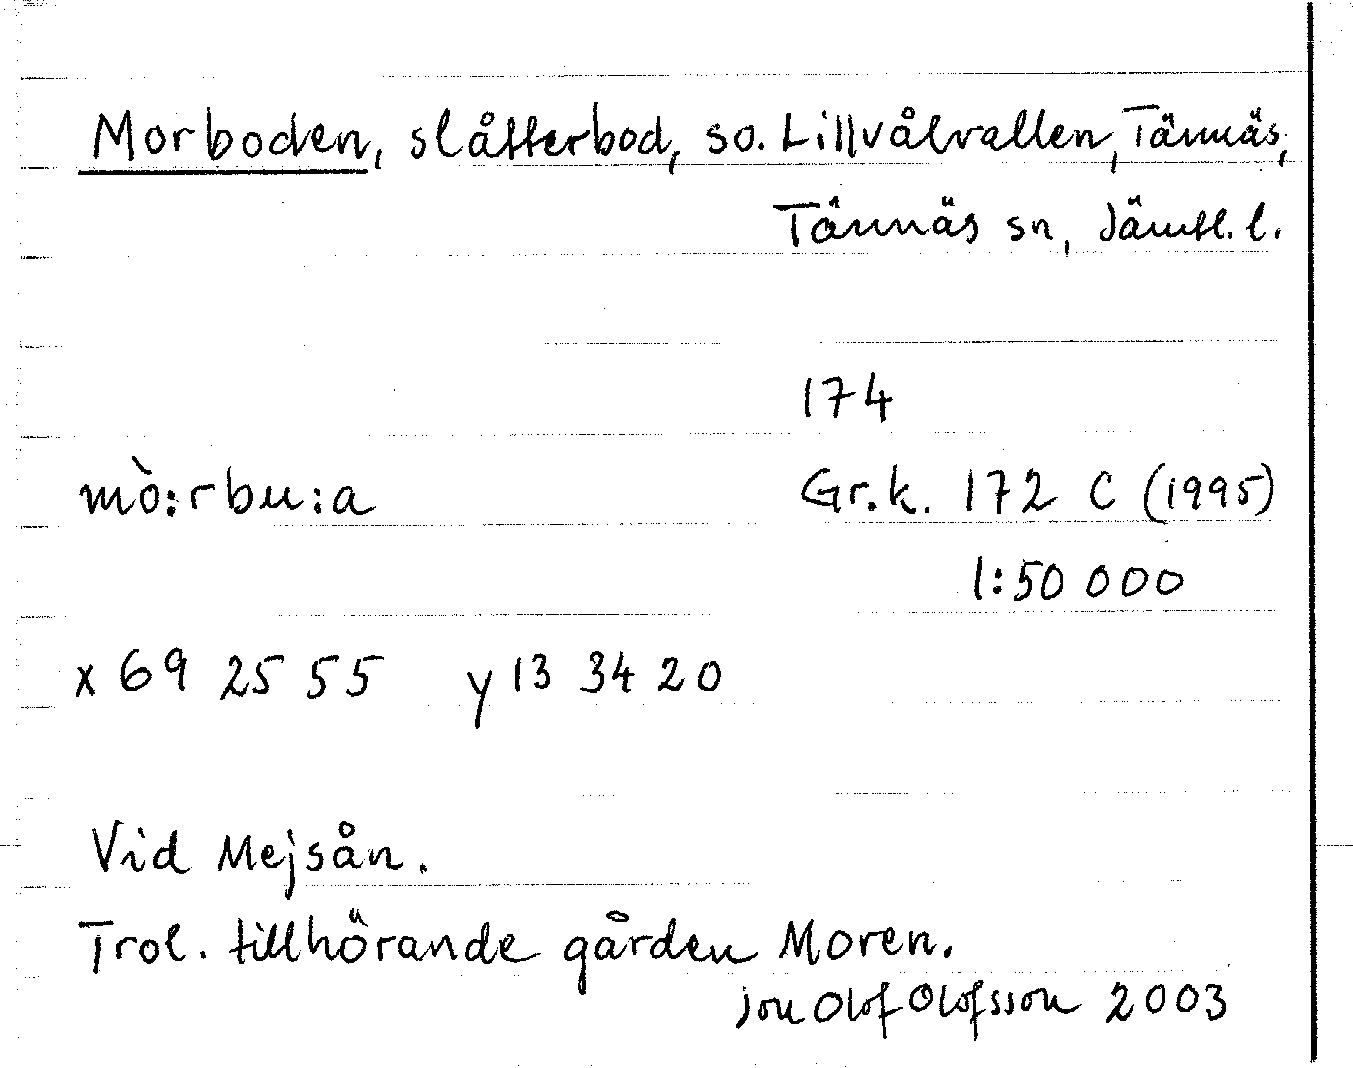 Morboden, slåtterbod, so. Lillvålvallen, Tännäs,
Tännäs sn, Jämtl. l.
174
mò:rbu:a Gr.k. 172 C (1995)
1:50 000
x 69 25 55 y 13 34 20
Vid Mejsån.
Trol. tillhörande gården Moren.
Jon Olof Olofsson 2003